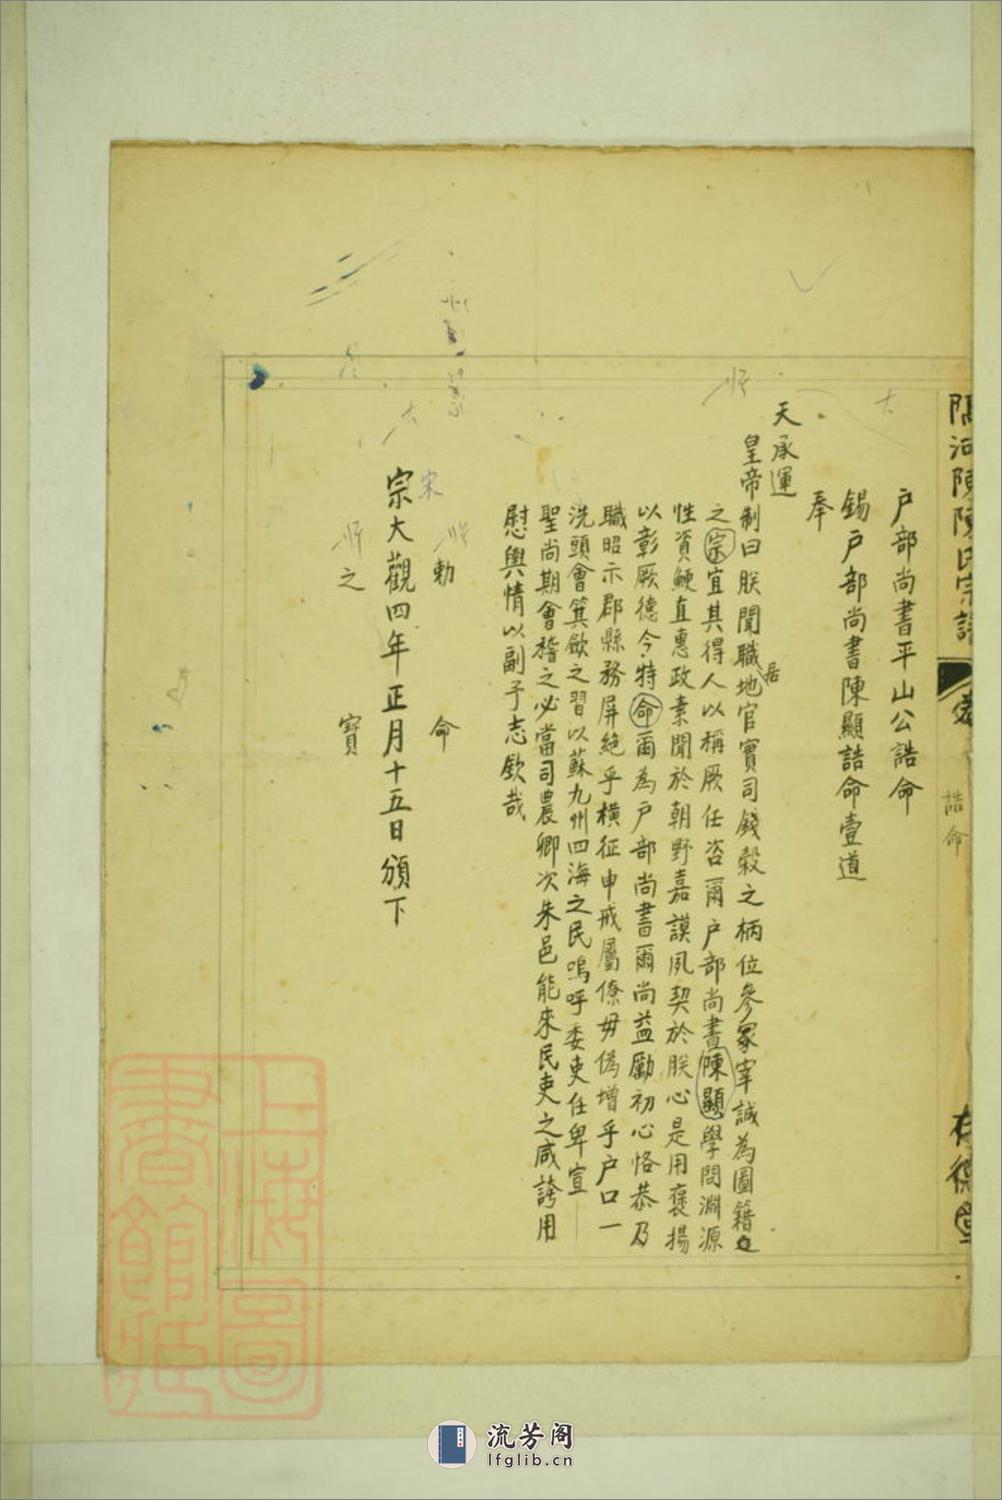 陳氏宗譜
誥命
存德堂
戶部尚書平山公誥命
錫戶部尚書陳顯誥命壹道
奉
天承運
皇帝制曰朕聞職居地官實司錢穀之柄位參冢宰誠為圖籍
之宗宜其得人以稱厥任咨爾戶部尚書陳顯學問淵源
性資鯁直惠政素聞於朝野嘉謨夙契於朕心是用褒揚
以彰厥德今特命爾為戶部尚書爾尚益勵初心恪恭乃
職昭示郡縣務屏絕乎橫征申戒屬僚毋偽增乎戶口一
洗頭會箕歛之習以蘇九州四海之民嗚呼委吏任卑宣
聖尚期會稽之必當司農卿次朱邑能來民吏之咸誇用
慰輿情以副予志欽哉
勅
命
宋
宗大觀四年正月十五日頒下
之
寶
上海圖書館藏
流芳阁
lfglib.cn